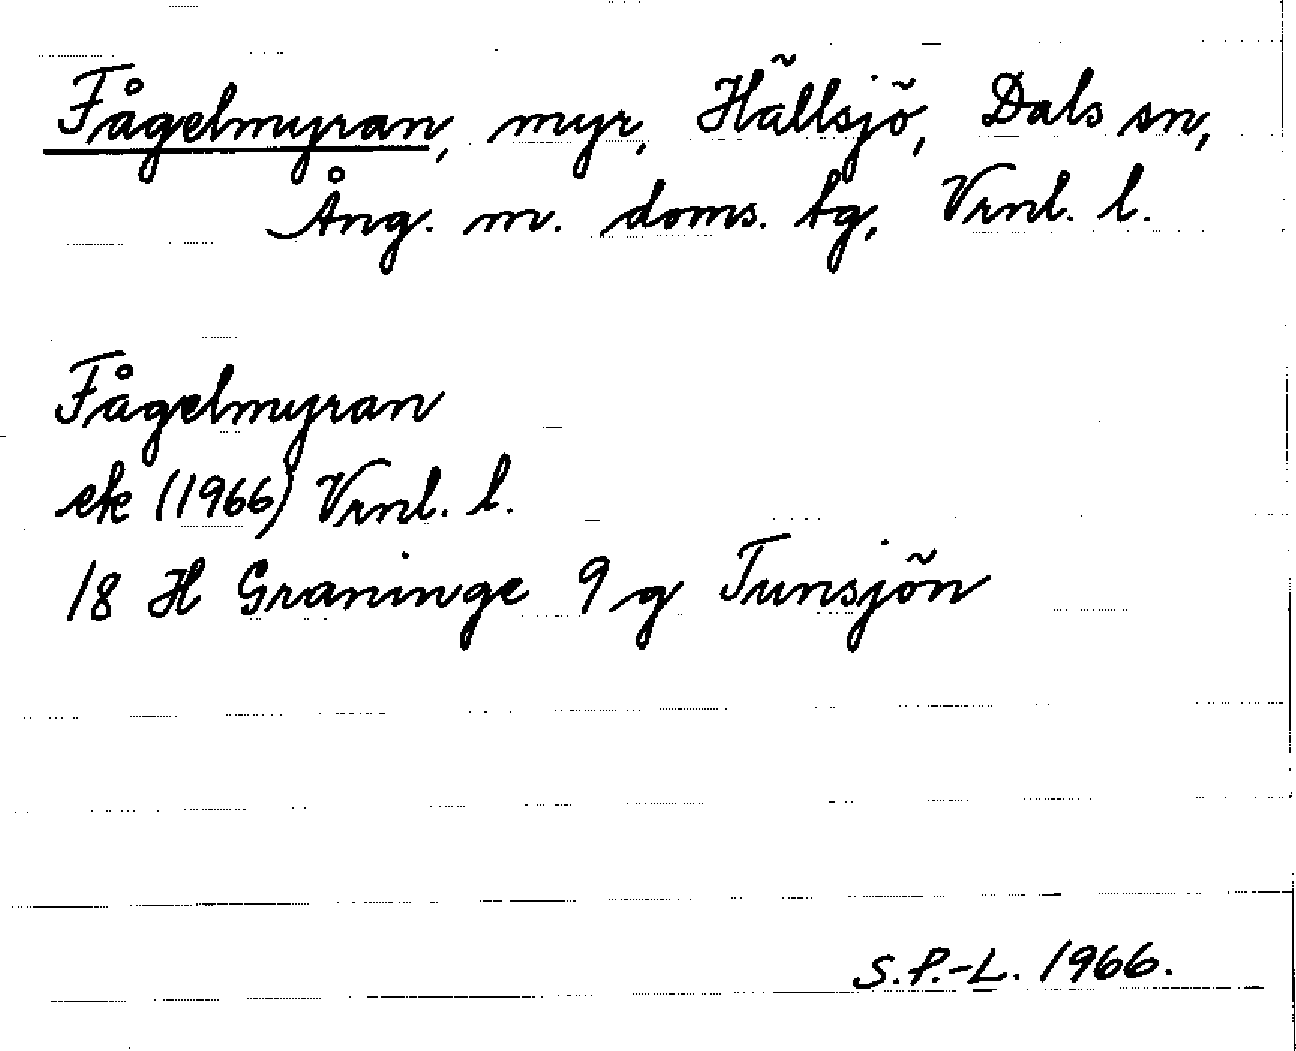 Fågelmyran, myr, Hällsjö, Dals sn,
Ång. m. doms. tg, Vrnl. l.
Fågelmyran
ek (1966) Vrnl. l.
18 H Graninge 9 g Tunsjön
S.P.-L. 1966.